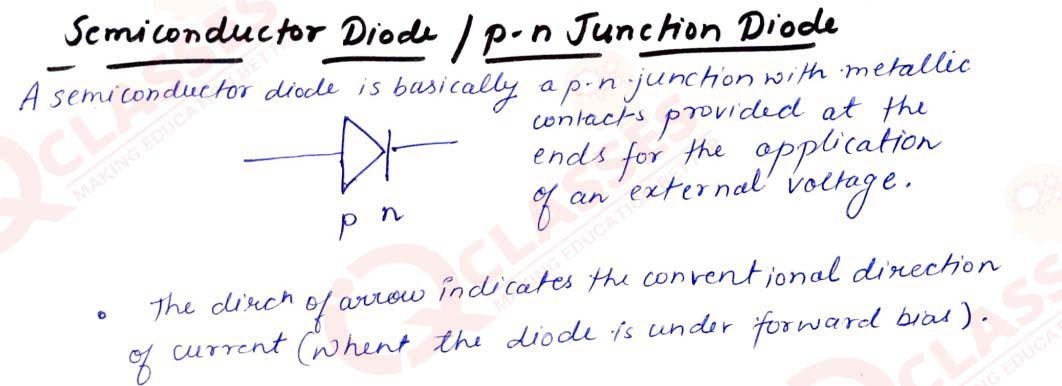 Semiconductor Diode / p-n Junction Diode
A semiconductor diode is basically a p-n junction with metallic
contacts provided at the
ends for the application
of an external voltage.
p n
• The dirch of arrow indicates the conventional direction
of current (whent the diode is under forward bias).
QCLASSES
MAKING EDUCATION BETTER